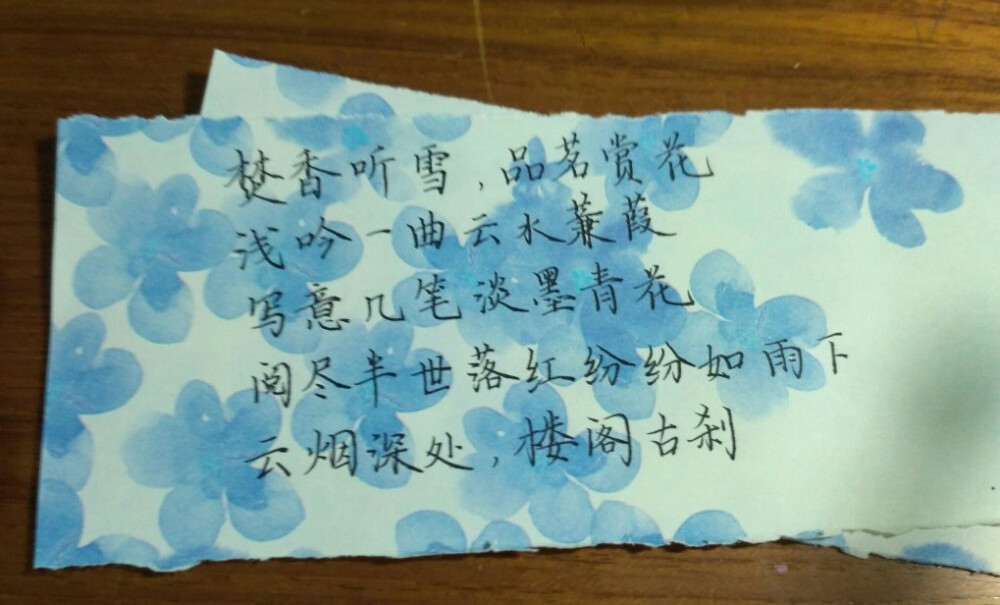 焚香听雪,品茗赏花
浅吟一曲云水蒹葭
写意几笔淡墨青花
阅尽半世落红纷纷如雨下
云烟深处,楼阁古刹